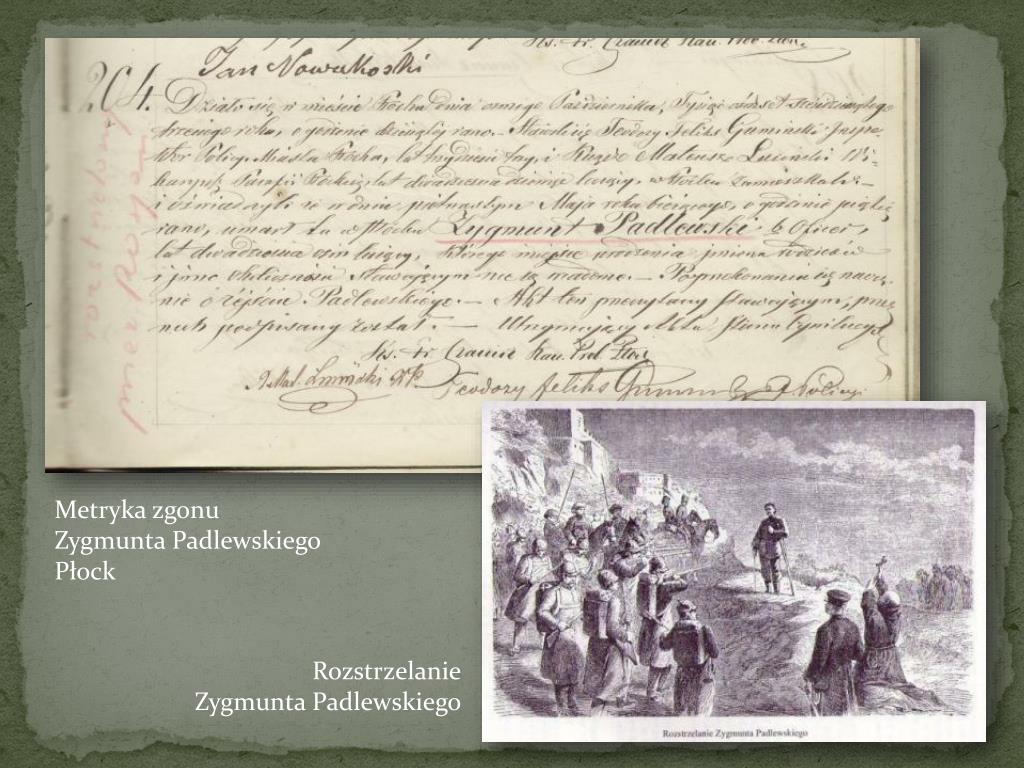 Jan Nowakoski
204. Działo się w mieście Płocku dnia ósmego Października, Tysiąc ośmset sześdziesiątego
trzeciego roku, o godzinie dziewiątej rano. — Stawili się Teodozy Feliks Gumiński Inspe-
ktor Policyi Miasta Płocka, lat i Mateusz
lat dwadzieścia liczący, w Płocku zamieszkali. —
i oświadczyli że w dniu piętnastym Maja roku bieżącego, o godzinie piątej
rano, umarł tu w Płocku Zygmunt Padlewski b. Oficer,
lat dwadzieścia ośm liczący, którego miejsce urodzenia imiona rodziców
i inne okoliczności stawającym nie są wiadome. — Po przekonaniu się naocz-
nie o zejściu Padlewskiego. — Akt ten przeczytany stawającym, przez
nich podpisany został. — Utrzymujący Akta Stanu Cywilnego
Teodozy Feliks
rozstrzelany
przez Rosjan
Metryka zgonu
Zygmunta Padlewskiego
Płock
Rozstrzelanie
Zygmunta Padlewskiego
Rozstrzelanie Zygmunta Padlewskiego